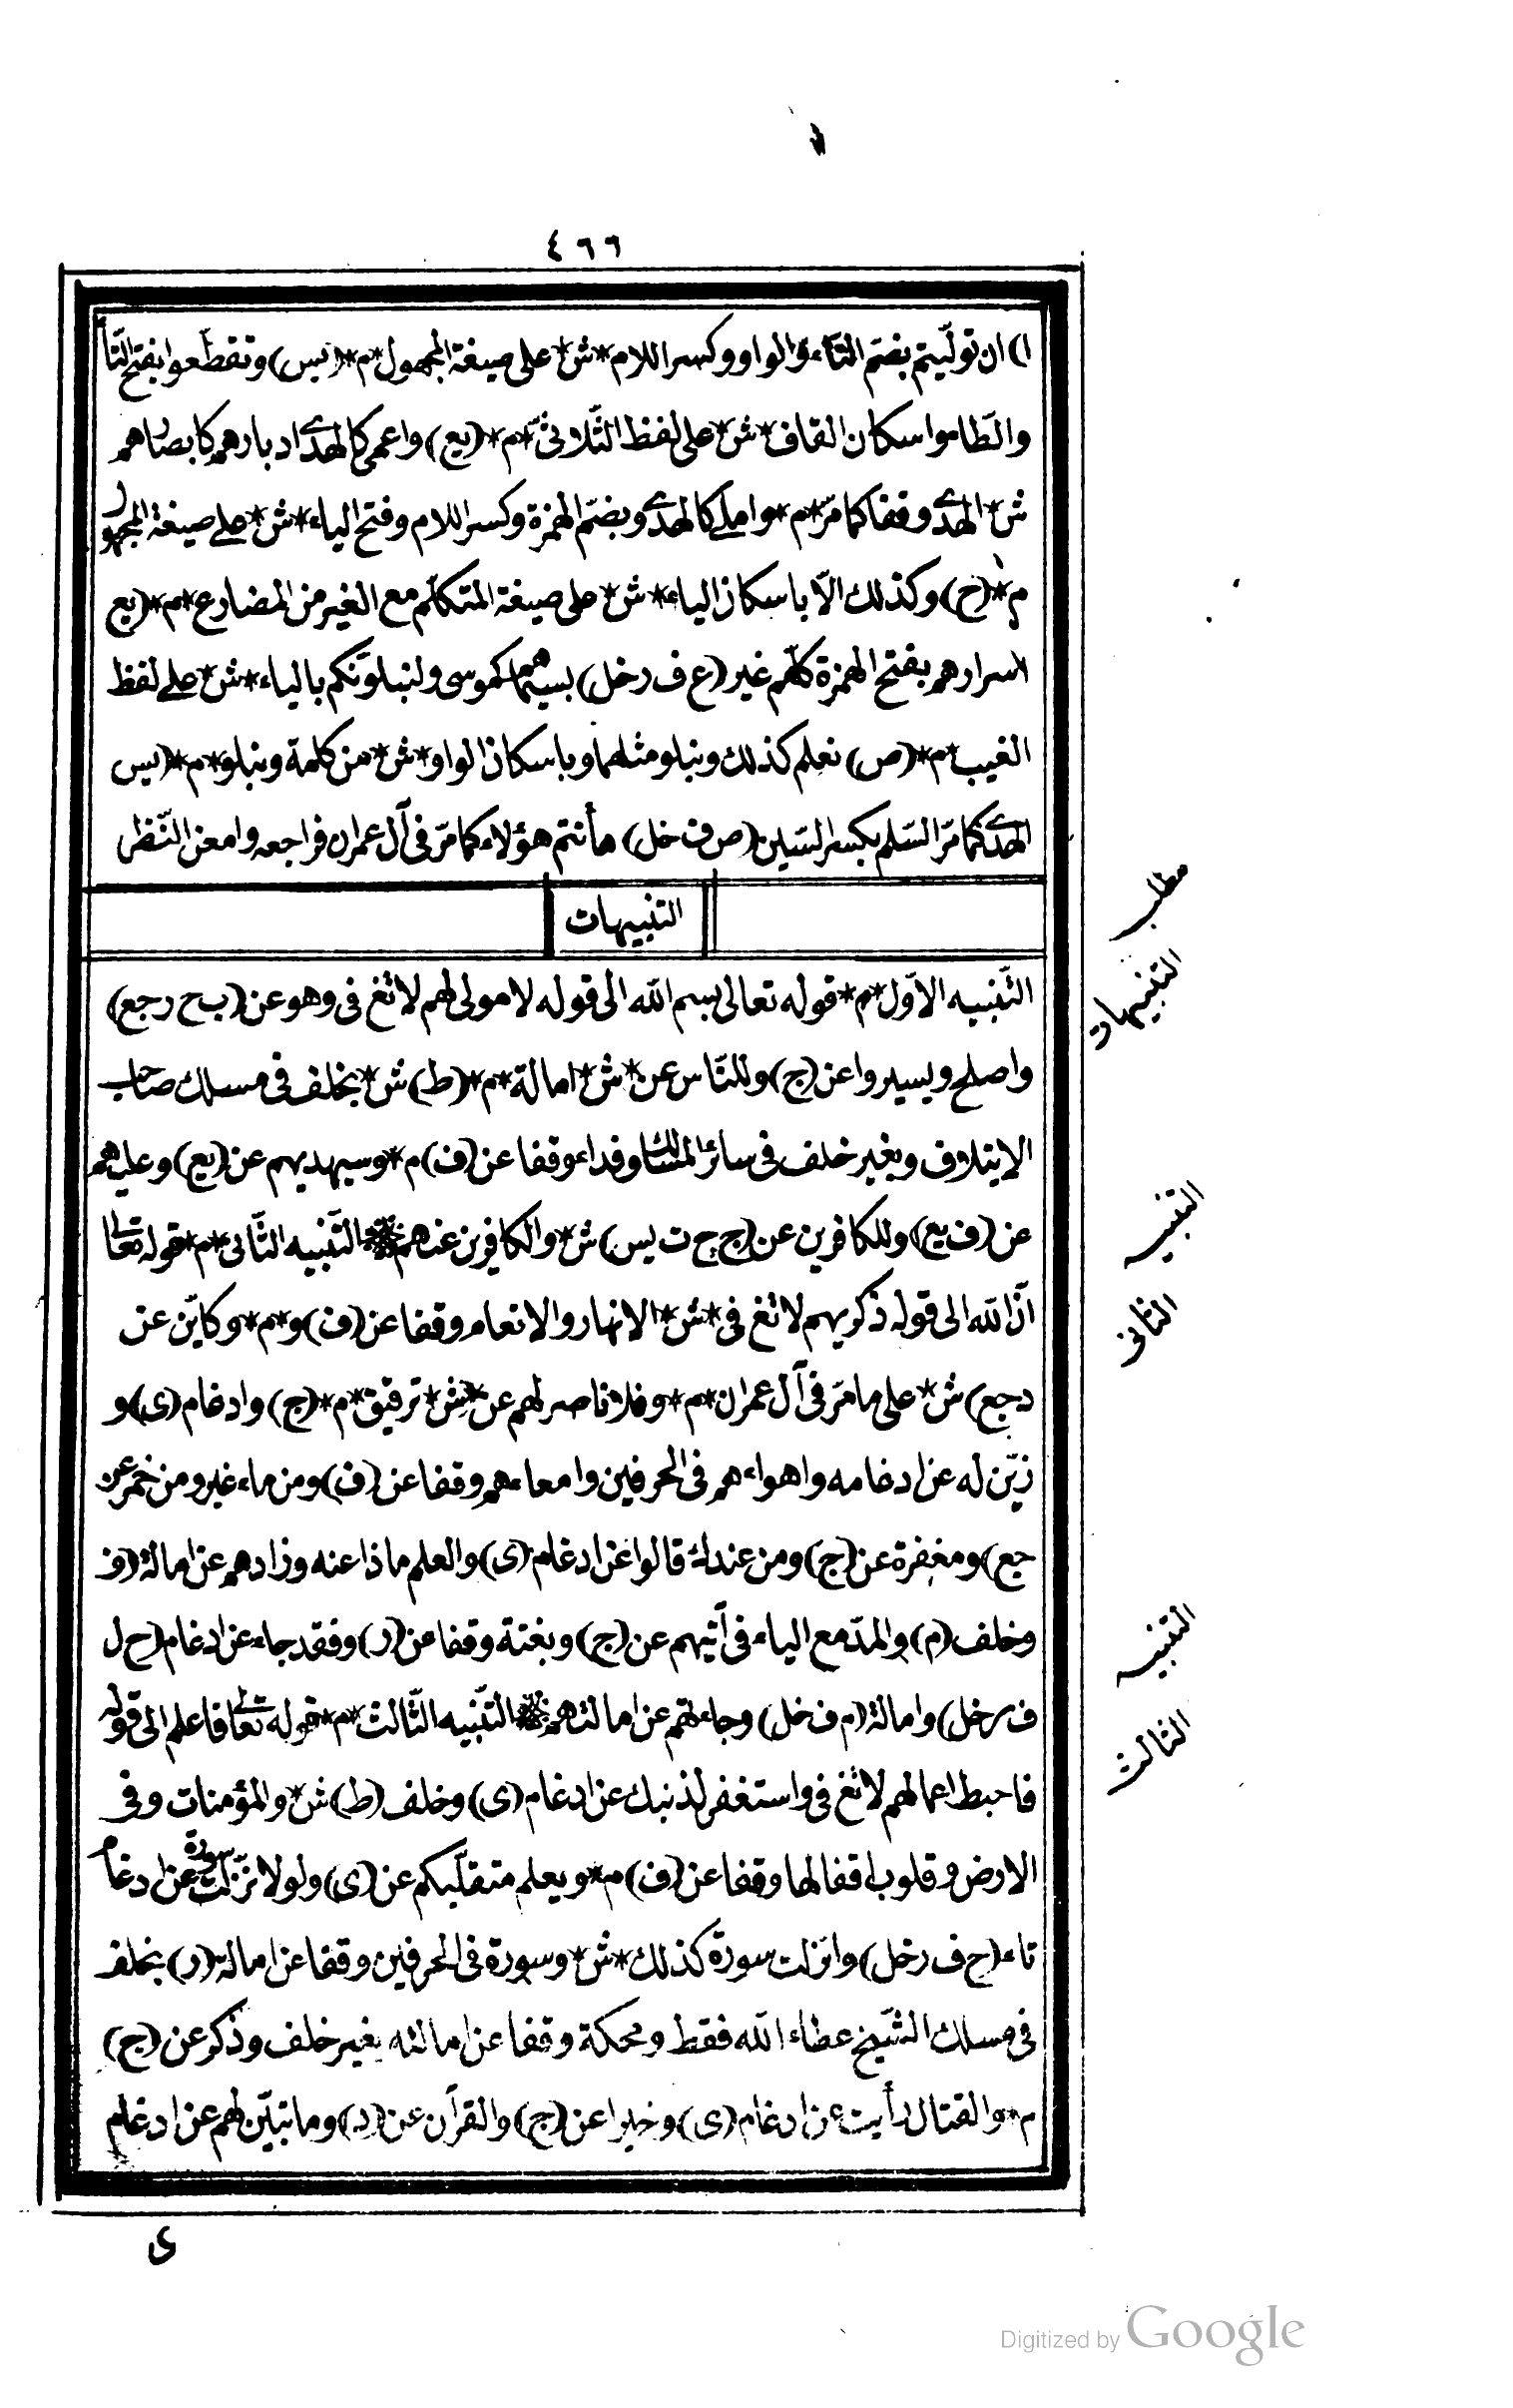 ٤٦٦
ا) ان تولّيتم بضمّ التّاء والواو وكسر اللام * ش * على صيغة المجهول * م * (يس) وتقطّعوا بفتح التّا
والطّاء واسكان القاف * ش * على لفظ الثّلاثىّ * م * (يع) واعمى كالهدى ادبارهم كابصارهم
ش * الهدى وقفا كما مرّ * م * واملى كالهدى وبضمّ الهمزة وكسر اللام وفتح الياء * ش * على صيغة المجهول
م * (ح) وكذلك الّا باسكان الياء * ش * على صيغة المتكلّم مع الغير من المضارع * م * (يع
اسرارهم بفتح الهمزة كلّهم غير (ع ف رخل) بسيماهم كموسى ولنبلونّكم بالياء * ش * على لفظ
الغيب * م * (ص) نعلم كذلك ونبلو مثلهما وباسكان الواو * ش * من كلمة ونبلو * م * (يس
الهدى كما مرّ السّلم بكسر السّين (ص ف خل) هأنتم هؤلاء كما مرّ فى آل عمران فراجعه وامعن النّظر
التنبيهات
مطلب
التنبيهات
التّنبيه الاوّل * م * قوله تعالى بسم الله الى قوله لا مولى لهم لا ثغ فى وهو عن (ب ح رجع)
واصلح ويسيروا عن (ج) وللنّاس عن * ش * امالة * م * (ط) ش * بخلف فى مسلك صاحب
الايتلاف وبغير خلف فى سائر المسالك وفداء وقفا عن (ف) م * وسيهديهم عن (يع) وعليهم
عن (ف يع) وللكافرين عن (ج ح ت يس) ش * والكافرين عنهم التّنبيه الثّانى * م * قوله تعالى
التنبيه
الثانى
انّ الله الى قوله ذكريهم لا ثغ فى * ش * الانهار والانعام وقفا عن (ف) و * م * وكايّن عن
دجع) ش * على ما مرّ فى آل عمران * م * وفلا ناصر لهم عن * ش * ترقيق * م * (ج) وادغام (ى) و
زيّن له عن ادغامه واهواءهم فى الحرفين وامعاءهم وقفا عن (ف) ومن ماء غير ومن خمر عن
جع) ومغفرة عن (ج) ومن عندك قالوا عن ادغام (ى) والعلم ماذا عنه وزادهم عن امالة (ف
وخلف (م) والمدّ مع الياء فى آتيهم عن (ج) وبغتة وقفا عن (ر) وفقد جاء عن ادغام (ح ل
التنبيه
الثالث
ف رخل) وامالة (م ف خل) وجاءتهم عن امالتهم التّنبيه الثّالث * م * قوله تعالى فاعلم الى قوله
فاحبط اعمالهم لا ثغ فى واستغفر لذنبك عن ادغام (ى) وخلف (ط) ش * والمؤمنات وفى
الارض وقلوب اقفالها وقفا عن (ف) م * ويعلم متقلّبكم عن (ى) ولولا نزّلت سورة عن ادغام
تاء (ح ف رخل) وانزلت سورة كذلك * ش * وسورة فى الحرفين وقفا عن امالة (ر) بخلف
فى مسلك الشّيخ عطاء الله فقط ومحكمة وقفا عن امالته بغير خلف وذكر عن (ج)
م * والقتال رأيت عن ادغام (ى) وخيرا عن (ج) والقرآن عن (د) وما تبيّن لهم عن ادغام
ى
Digitized by Google